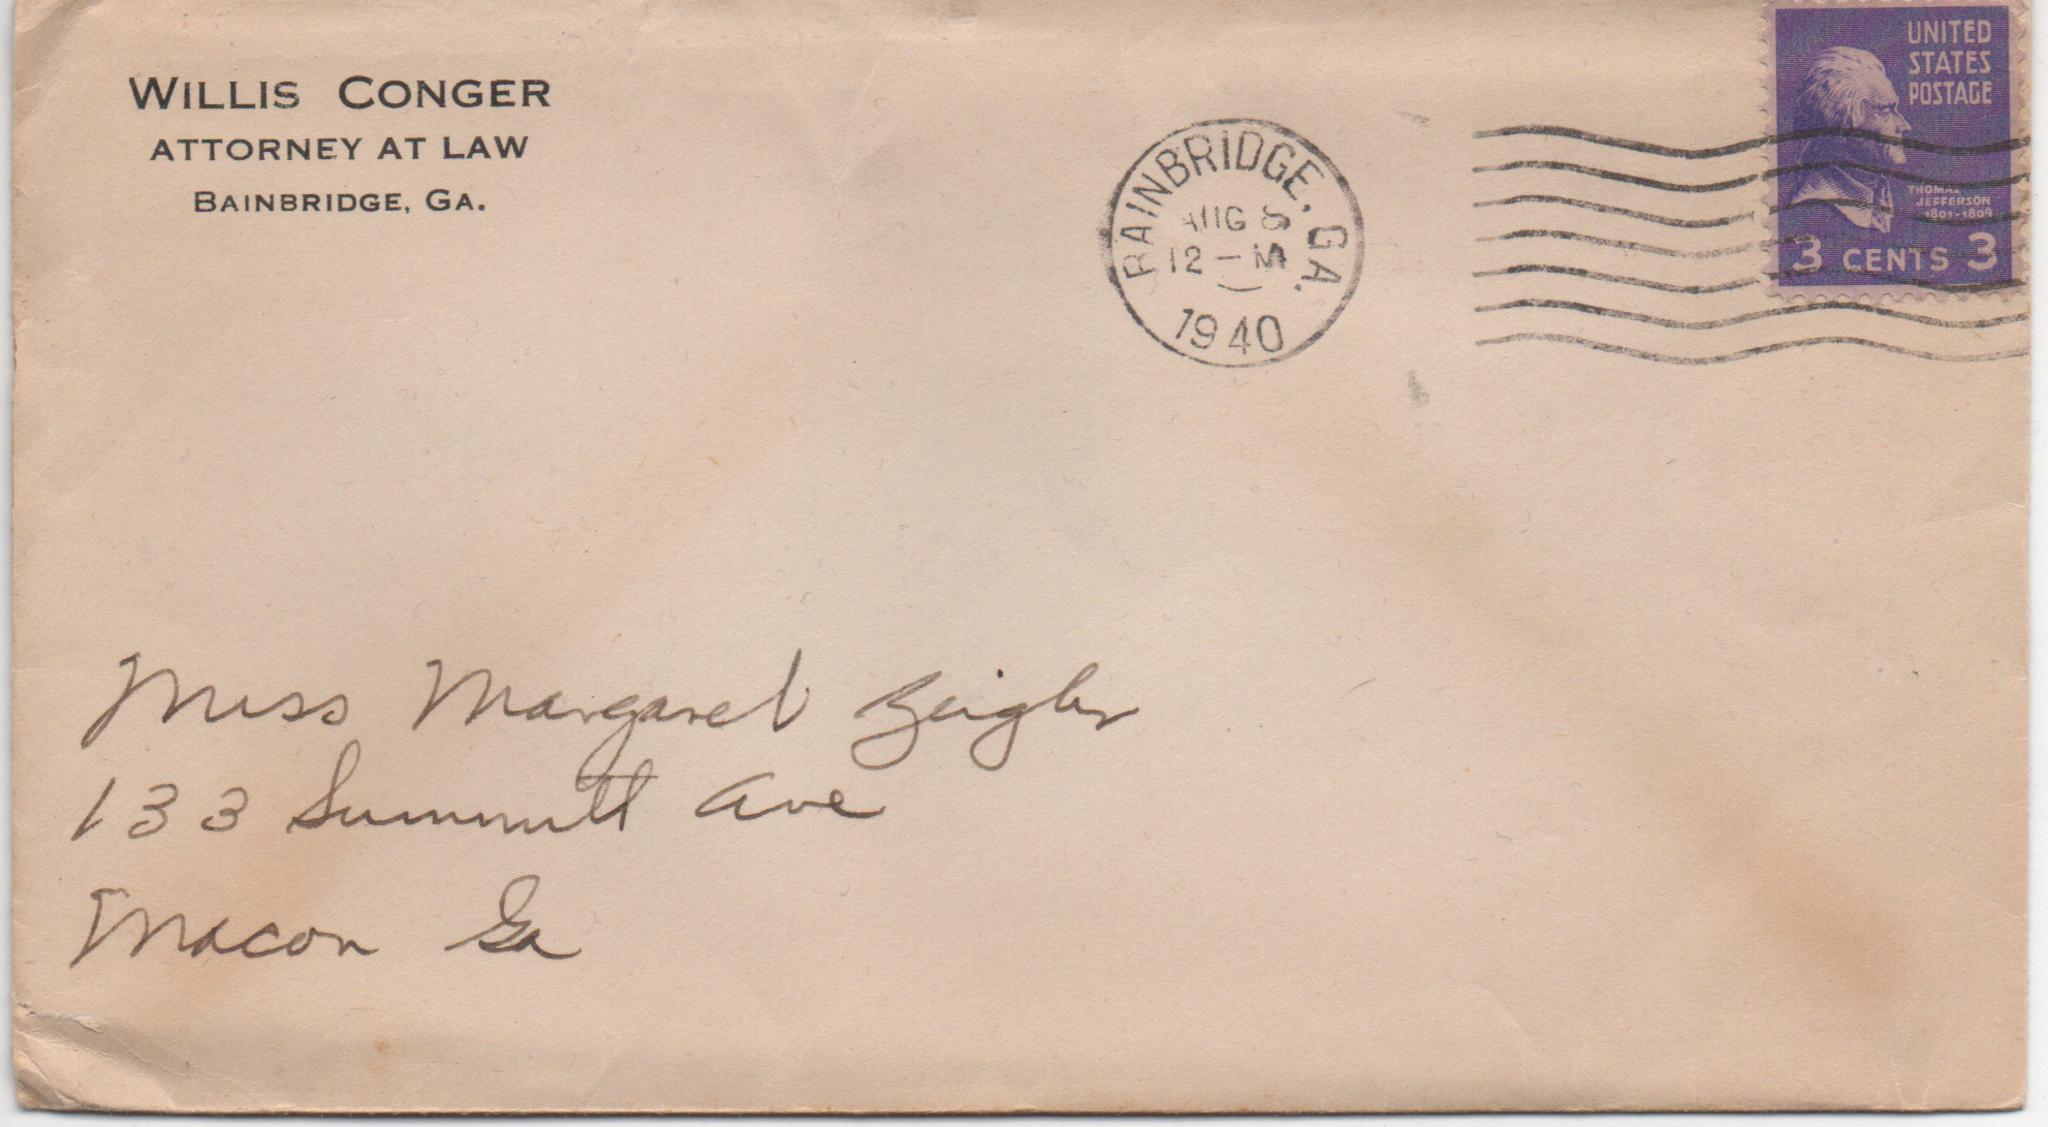 WILLIS CONGER
ATTORNEY AT LAW
BAINBRIDGE, GA.
BAINBRIDGE, GA.
AUG 8
12 – M
1940
UNITED
STATES
POSTAGE
THOMAS
JEFFERSON
1801-1809
3 CENTS 3
Miss Margaret Zeigler
133 Summitt Ave
Macon Ga